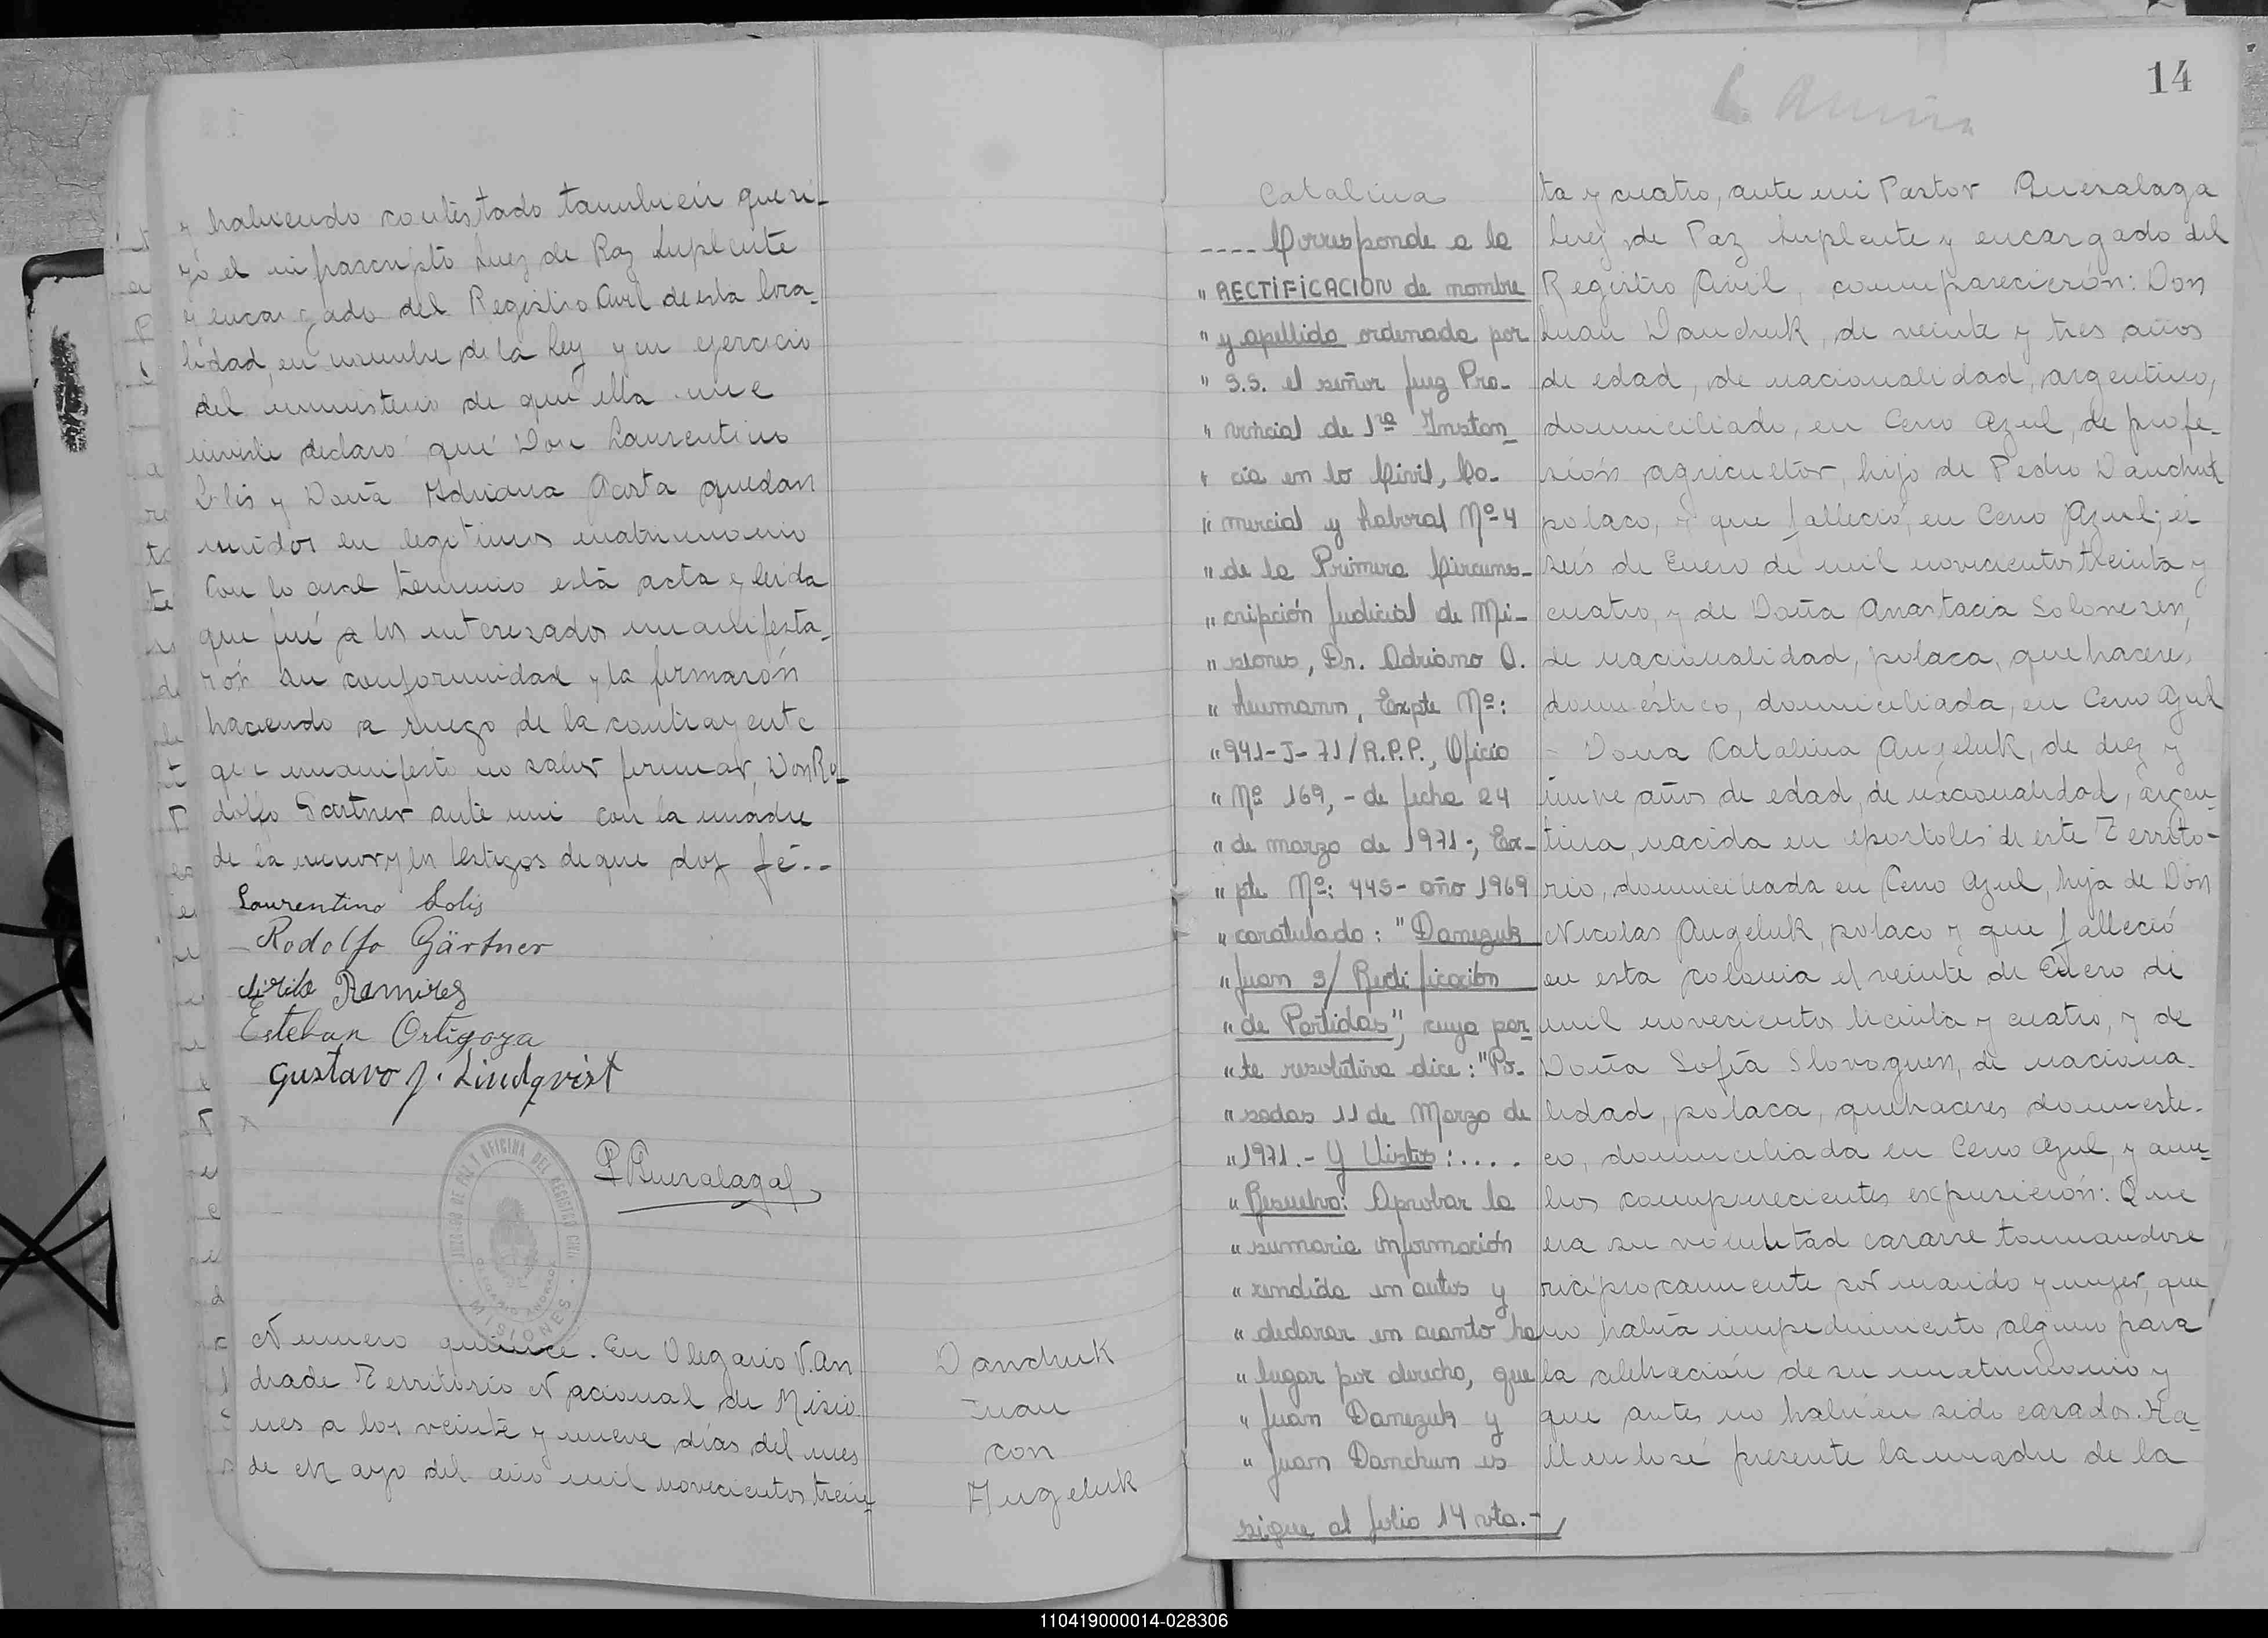 y habiendo contestado tambien que si_
yó el infrascripto Juez de Paz Suplente
y encargado del Registro Civil de esta loca_
lidad, en nombre de la Ley y en ejercicio
del ministerio de que ella me
inviste declaró que Don Laurentino
Solis y Doña Adriana Acosta quedan
unidos en legitimos matrimonio
Con lo cual termino está acta y leida
que fué a los interesados manifesta_
rón su conformidad y la firmarón
haciendo a ruego de la contrayente
que manifesto no saber firmar, Don Ro_
dolfo Gartner ante mi con la madre
de la menor y los testigos de que doy fé--
Laurentino Solis
Rodolfo Gärtner
Ramirez
Esteban Ortigoza
Gustavo J. Lindqvist
P Quesalaga
JUZGADO DE PAZ Y OFICINA DEL REGISTRO CIVIL
OLEGARIO ANDRADE
MISIONES
Numero quince. En Olegario V. An
drade Territorio Nacional de Misio_
nes a los veinte y nueve días del mes
de Mayo del año mil novecientos trein_
Danchuk
Juan
con
Angeluk
14
Catalina
---- Corresponde a la
" RECTIFICACION de nombre
" y apellido ordenada por
" S.S. el señor Juez Pro_
" vincial de 1ra Instan_
" cia en lo Civil, Co_
" mercial y Laboral Nº 4
" de la Primera Circuns_
" cripción Judicial de Mi_
" siones, Dr. Adriano O.
" Neumann, Expte Nº:
" 941-J-71/R.P.P., Oficio
" Nº 169,- de fecha 24
" de marzo de 1971-; Ex_
" pte Nº: 445- año 1969
" caratulado: "Danezuk
" Juan S/ Rectificación
" de Partidas", cuya par_
" te resolutiva dice: "Po_
" sadas 11 de Marzo de
" 1971.- Y Vistos:....
" Resuelvo: Aprobar la
" sumaria información
" rendida en autos y
" declarar en cuanto ha
" lugar por derecho, que
" Juan Danezuk y
" Juan Danchun es
sigue al folio 14 vta.-
ta y cuatro, ante mi Pastor Quesalaga
Juez de Paz Suplente y encargado del
Registro Civil, comparecierón: Don
Juan Danchuk, de veinte y tres años
de edad, de nacionalidad, argentino,
domiciliado, en Cerro Azul, de profe_
sión agricultor, hijo de Pedro Danchuk
polaco, y que falleció, en Cerro Azul; el
seis de Enero de mil novecientos treinta y
cuatro, y de Doña Anastacia Solonesen,
de nacionalidad, polaca, quehaceres
doméstico, domiciliada, en Cerro Azul
- Dona Catalina Angeluk, de diez y
nueve años de edad, de nacionalidad, argen_
tina, nacida en apostoles de este Territo-
rio, domiciliada en Cerro Azul, hija de Don
Nicolas Angeluk, polaco y que falleció
en esta colonia el veinte de Enero de
mil novecientos treinta y cuatro, y de
Doña Sofía Slovoguen, de naciona_
lidad, polaca, quehaceres domesti_
co, domiciliada en Cerro Azul, y am_
bos comparecientes expusierón: Que
era su voluntad casarse tomandose
reciprocamente por marido y mujer, que
no había impedimiento alguno para
la celebración de su matrimonio y
que antes no habíen sido casados. Ha_
llandosé presente la madre de la
110419000014-028306